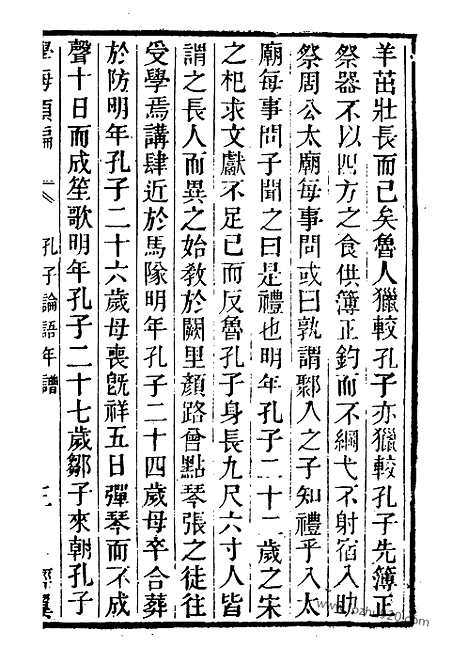 羊茁壯長而已矣魯人獵較孔子亦獵較孔子先簿正
祭器不以四方之食供簿正釣而不綱弋不射宿入助
祭周公太廟每事問或曰孰謂鄹人之子知禮乎入太
廟每事問子聞之曰是禮也明年孔子二十二歲之宋
之杞求文獻不足已而反魯孔子身長九尺六寸人皆
謂之長人而異之始教於闕里顏路曾點琴張之徒往
受學焉講肆近於馬隊明年孔子二十四歲母卒合葬
於防明年孔子二十六歲母喪既祥五日彈琴而不成
聲十日而成笙歌明年孔子二十七歲鄒子來朝孔子
學海類編
孔子論語年譜
三
經翼